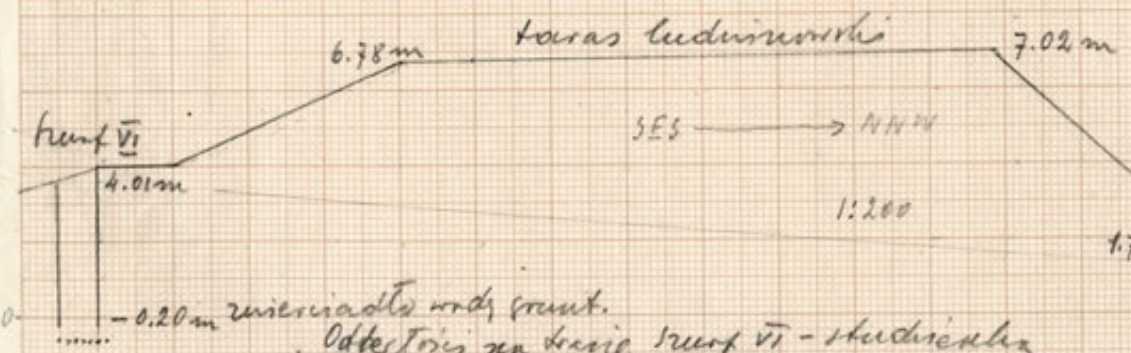 taras ludwinowski
6.78 m
7.02 m
szurf VI
SES → NNW
4.01 m
1:200
1.7
0
- 0.20 m zwierciadło wody grunt.
Odległości na trasie szurf VI - studzienka